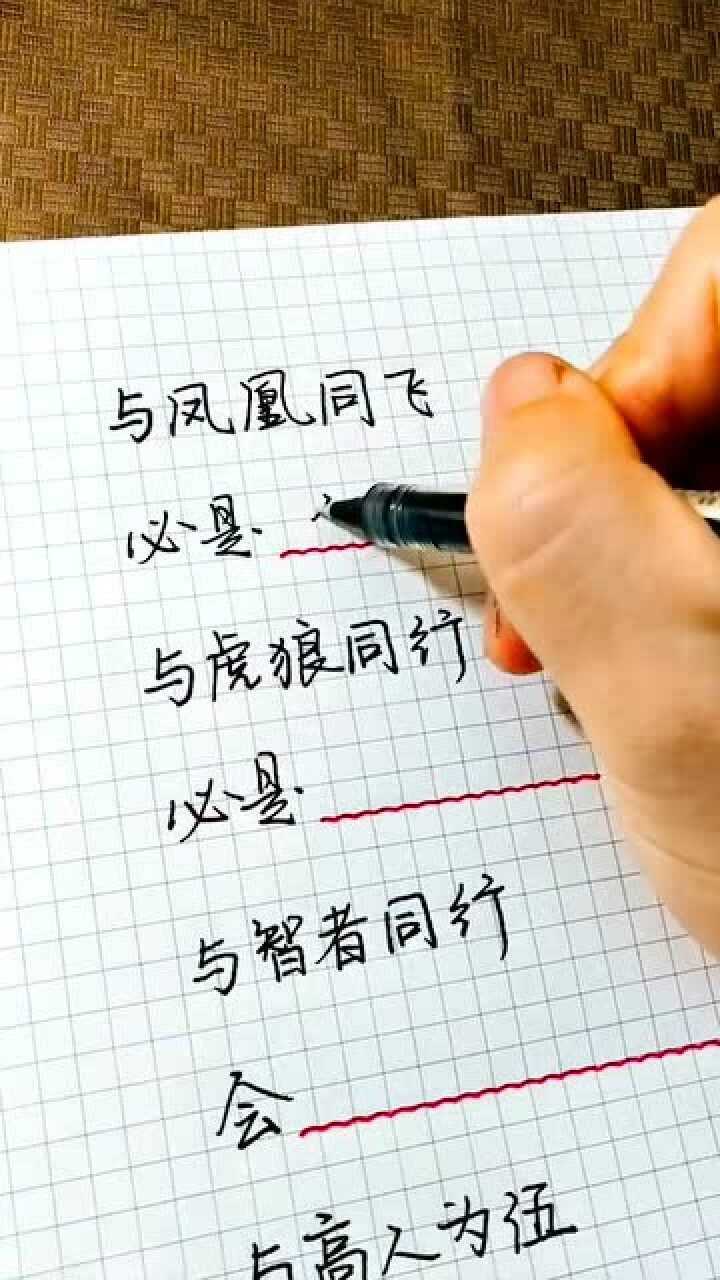 与凤凰同飞
必是
与虎狼同行
必是
与智者同行
会
与高人为伍